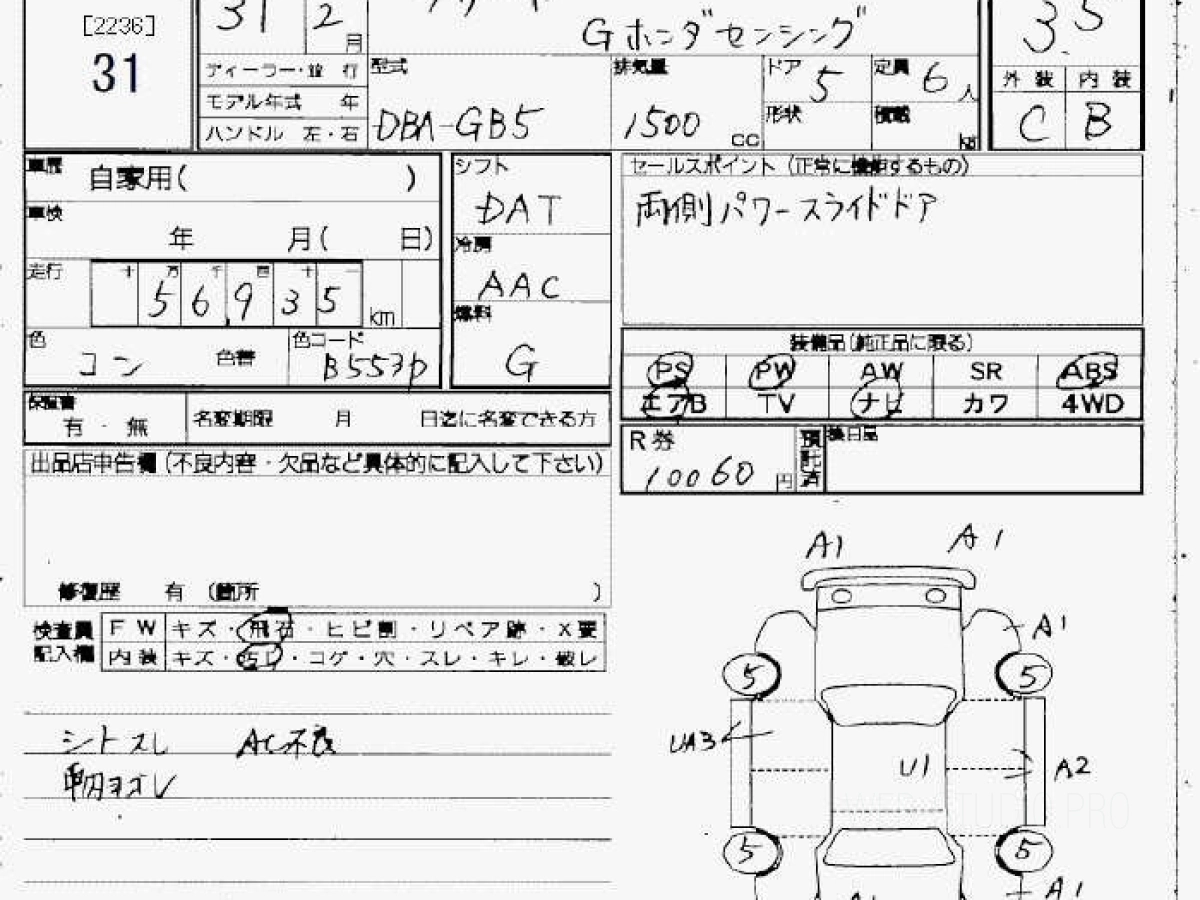 [2236]
31
31 2月
Gホンダセンシング
3.5
ディーラー・並 行
モデル年式 年
ハンドル 左・右
型式
DBA-GB5
排気量
1500 cc
ドア 5
形状
定員 6人
積載 kg
外装 内装
C B
車歴 自家用( )
車検 年 月( 日)
走行 十 万 千 百 十 一
56,935 km
色 コン 色替
色コード B553P
シフト
DAT
冷房
AAC
燃料
G
セールスポイント (正常に機能するもの)
両側パワースライドドア
装備品(純正品に限る)
PS PW AW SR ABS
エアB TV ナビ カワ 4WD
保証書 有・無
名変期限 月 日迄に名変できる方
R券 10060 円
預託済
出品店申告欄(不良内容・欠品など具体的に記入して下さい)
修復歴 有 (箇所 )
検査員記入欄
FW キズ・飛石・ヒビ割・リペア跡・X要
内装 キズ・汚レ・コゲ・穴・スレ・キレ・破レ
シトスレ AC不良
車内ヨゴレ
A1 A1
A1
5 5
UA3 U1 A2
5 5
A1
A1